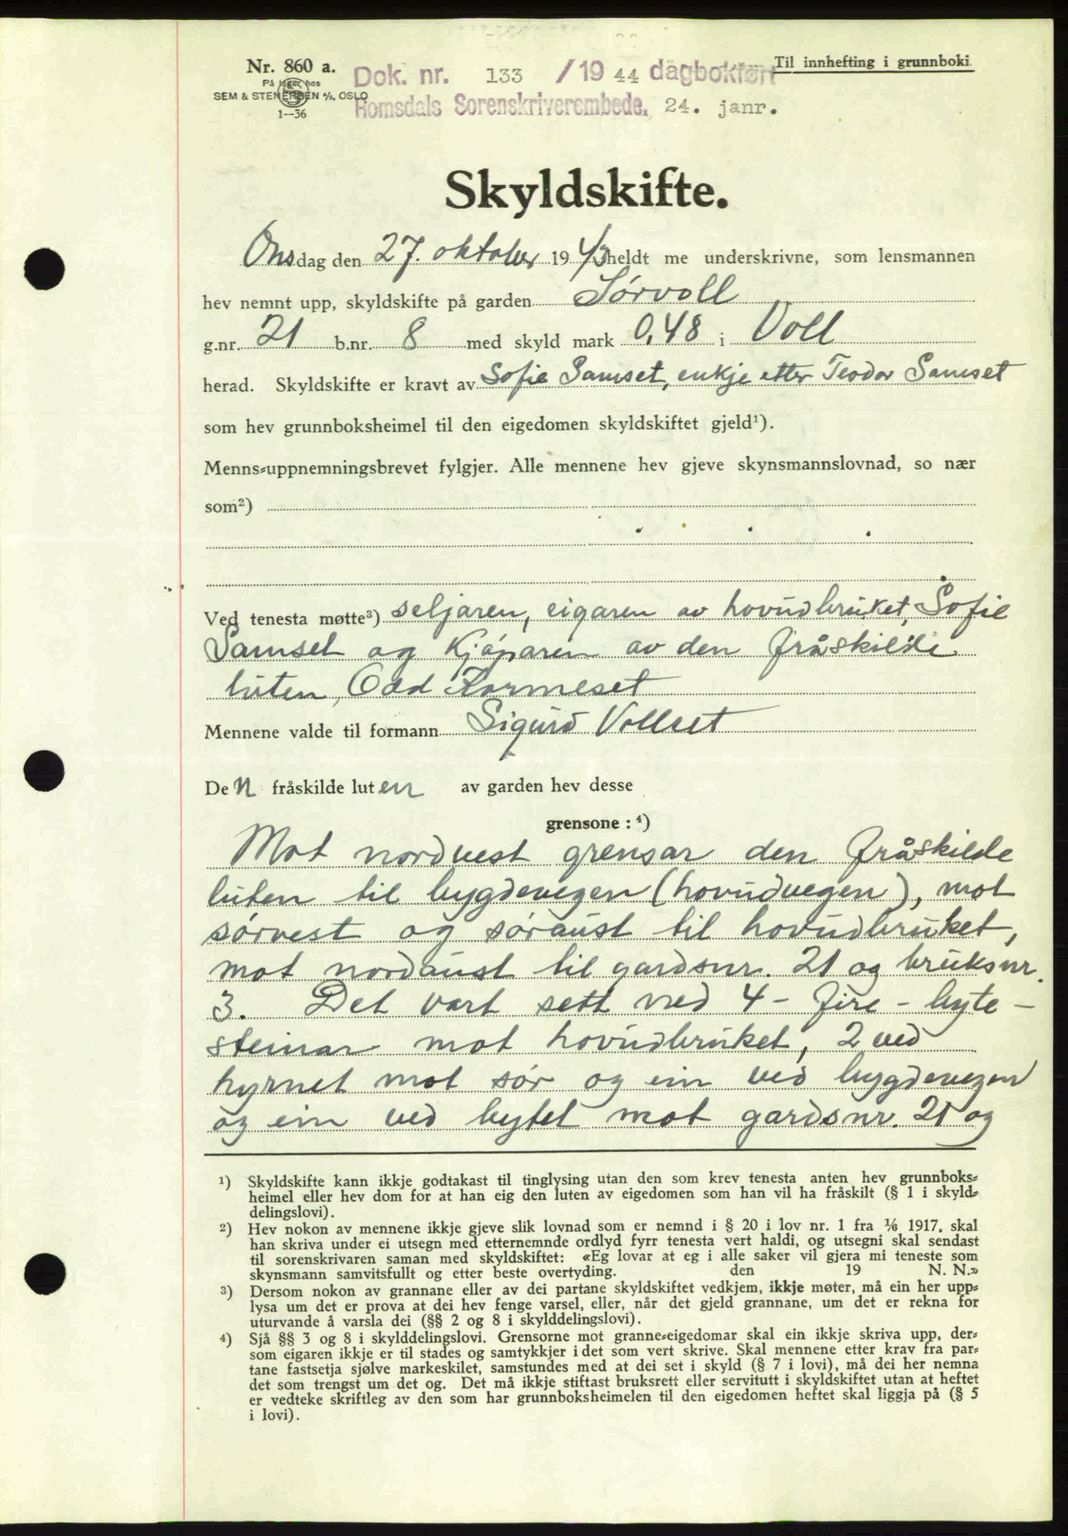 Nr. 860 a.
På lager hos
SEM & STENERSEN A/S, OSLO
1—36
Dok. nr. 133 /19 44 dagbokført
Romsdals Sorenskriverembede, 24. janr.
Til innhefting i grunnboki
Skyldskifte.
Onsdag den 27. oktober 1943 heldt me underskrivne, som lensmannen
hev nemnt upp, skyldskifte på garden Sørvoll
g.nr. 21 b.nr. 8 med skyld mark 0,48 i Voll
herad. Skyldskifte er kravt av Sofie Samset, enkje etter Teodor Samset
som hev grunnboksheimel til den eigedomen skyldskiftet gjeld¹).
Menns=uppnemningsbrevet fylgjer. Alle mennene hev gjeve skynsmannslovnad, so nær
som²)
Ved tenesta møtte³) seljaren, eigaren av hovudbruket, Sofie
Samset og kjøparen av den fråskilde
luten, Odd Kormeset
Mennene valde til formann Sigurd Vollset
Den fråskilde luten av garden hev desse
grensone : ⁴)
Mot nordvest grensar den fråskilde
luten til bygdevegen (hovudvegen), mot
sørvest og søraust til hovudbruket,
mot nordaust til gardsnr. 21 og bruksnr.
3. Det vart sett ned 4 - fire - byte-
steinar mot hovudbruket, 2 ved
hyrnet mot sør og ein ved bygdevegen
og ein ved bytet mot gardsnr. 21 og
¹) Skyldskifte kann ikkje godtakast til tinglysing utan den som krev tenesta anten hev grunnboks=
heimel eller hev dom for at han eig den luten av eigedomen som han vil ha fråskilt (§ 1 i skyld=
delingslovi).
²) Hev nokon av mennene ikkje gjeve slik lovnad som er nemnd i § 20 i lov nr. 1 fra 1/6 1917, skal
han skriva under ei utsegn med etternemnde ordlyd fyrr tenesta vert haldi, og utsegni skal sendast
til sorenskrivaren saman med skyldskiftet: «Eg lovar at eg i alle saker vil gjera mi teneste som
skynsmann samvitsfullt og etter beste overtyding. den 19 N. N.»
³) Dersom nokon av grannane eller av dei partane skyldskiftet vedkjem, ikkje møter, må ein her upp=
lysa um det er prova at dei hev fenge varsel, eller, når det gjeld grannane, um det er rekna for
uturvande å varsla dei (§§ 2 og 8 i skylddelingslovi).
⁴) Sjå §§ 3 og 8 i skylddelingslovi. Grensorne mot granne=eigedomar skal ein ikkje skriva upp, der=
som eigaren ikkje er til stades og samtykkjer i det som vert skrive. Skal mennene etter krav fra par=
tane fastsetja sjølve markeskilet, samstundes med at dei set i skyld (§ 7 i lovi), må dei her nemna
det som trengst um det og. Det må ikkje stiftast bruksrett eller servitutt i skyldskiftet utan at heftet
er vedteke skriftleg av den som har grunnboksheimelen til den eigedomen heftet skal liggja på (§ 5
i lovi).